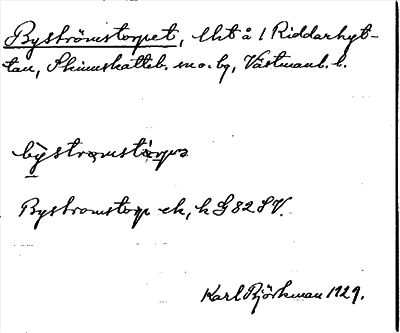 Byströmstorpet, lht å 1 Riddarhyt-
tan, Skinnskatteb. sn o. by, Västmanl. l.
bystromstorpə
Bystromstorp ek, k G 82 SV.
Karl Björkman 1929.